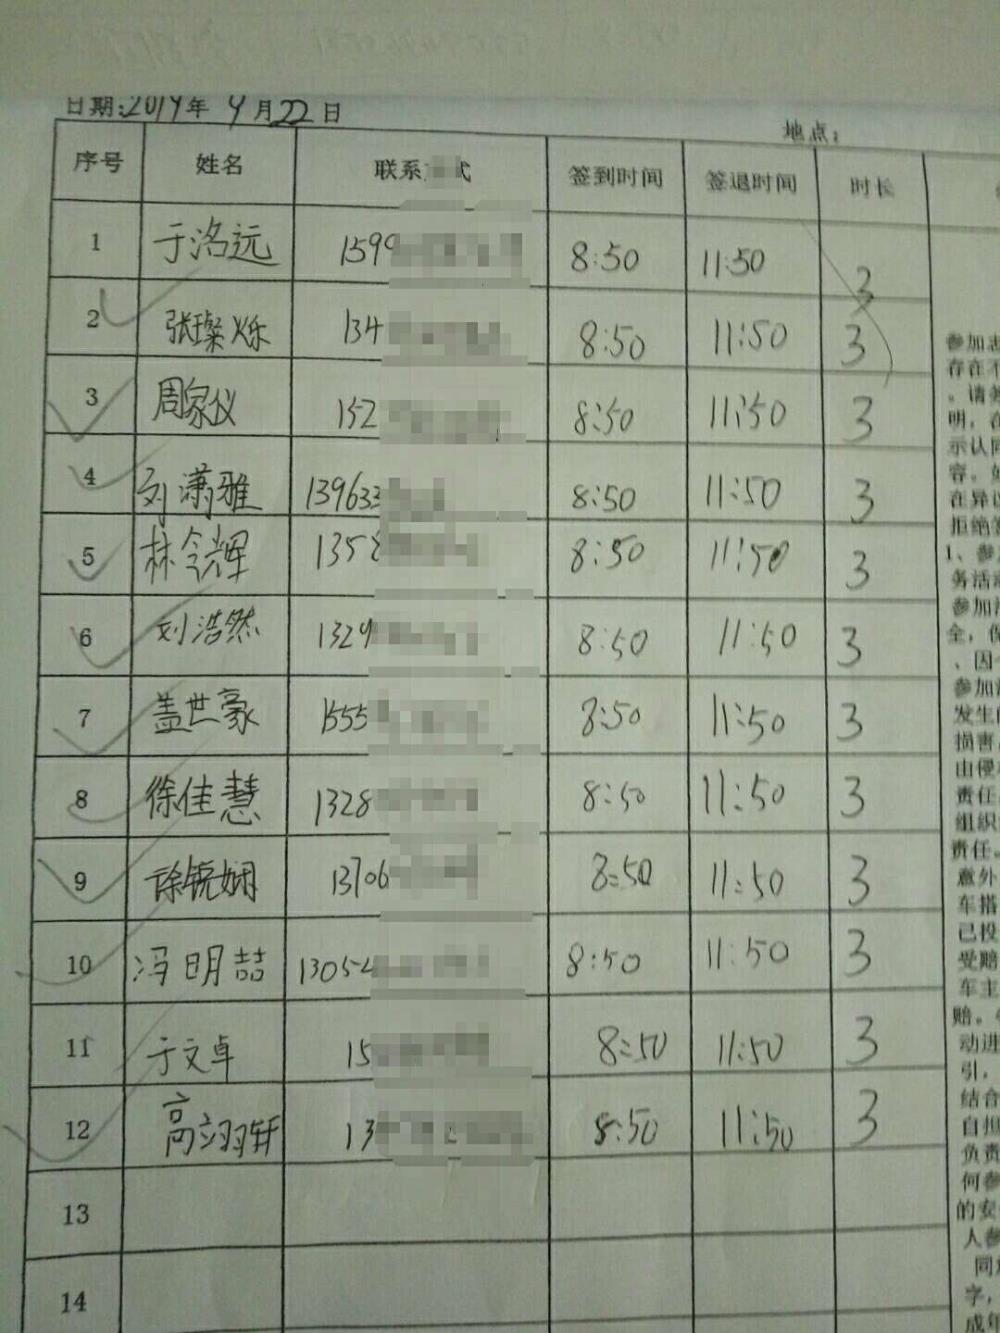 日期:2019年 9月22日
地点:
序号 姓名 联系 式 签到时间 签退时间 时长
1 于洺远 1599 8:50 11:50 3
2 张璨烁 134 8:50 11:50 3
3 周家仪 152 8:50 11:50 3
4 刘潇雅 139633 8:50 11:50 3
5 林令辉 1358 8:50 11:50 3
6 刘浩然 1329 8:50 11:50 3
7 盖世豪 1555 8:50 11:50 3
8 徐佳慧 1328 8:50 11:50 3
9 徐锐娴 13706 8:50 11:50 3
10 冯明喆 13054 8:50 11:50 3
11 于文卓 15 8:50 11:50 3
12 高翊轩 13 8:50 11:50 3
13
14
参加志
存在不
。请务
明，在
示认同
容。如
在异议
拒绝签
1、参
务活动
参加
全，保
、因
参加
发生
损害
由侵
责任
组织
责任。
意外
车搭
已投
受赔
车主
赔。
动进
引，
结合
自担
负责
何参
的安
人参
同
字，
成年